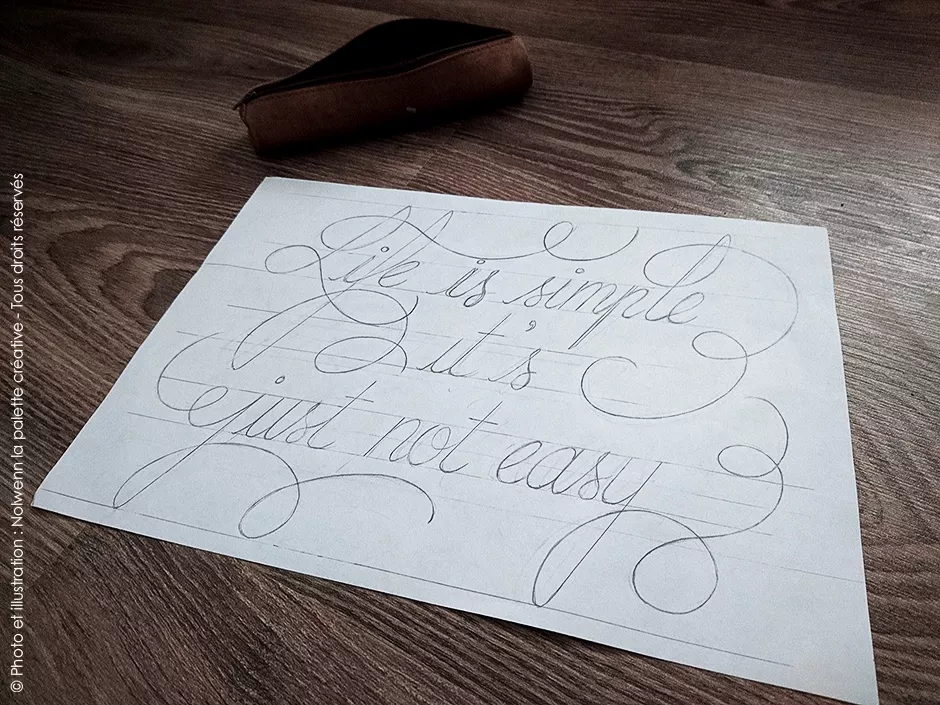 Life is simple
it's
just not easy
© Photo et illustration : Nolwenn la palette créative - Tous droits réservés